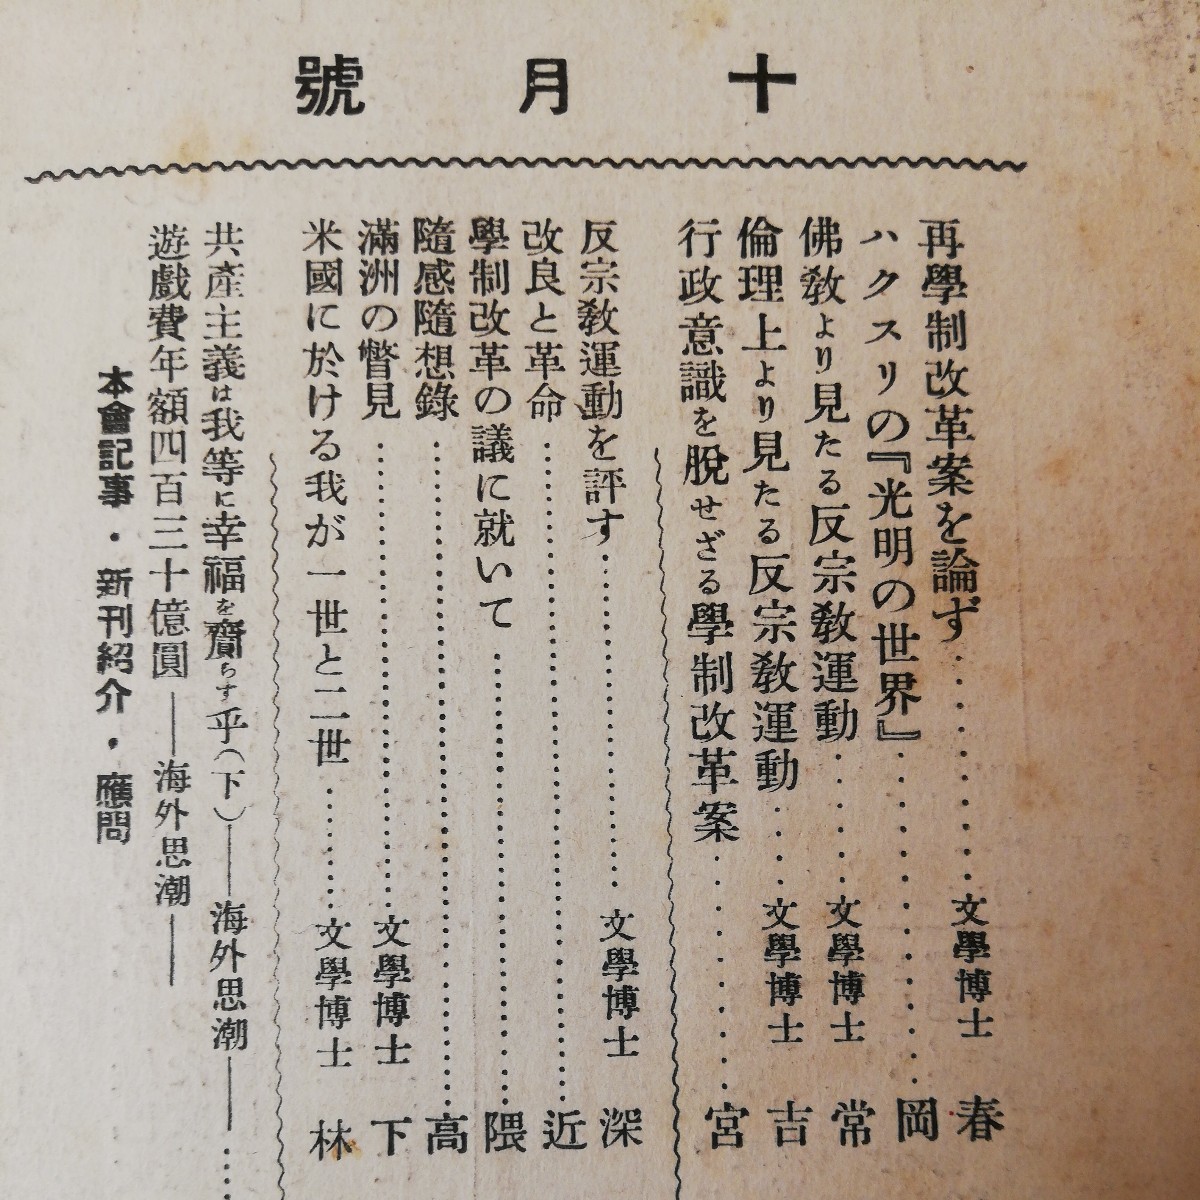 十月號
再學制改革案を論ず…………文學博士 春
ハクスリの『光明の世界』…………岡
佛教より見たる反宗教運動………文學博士 常
倫理上より見たる反宗教運動……文學博士 吉
行政意識を脫せざる學制改革案…………宮
反宗教運動を評す…………文學博士 深
改良と革命…………近
學制改革の議に就いて…………隈
隨感隨想錄…………高
滿洲の瞥見…………文學博士 下
米國に於ける我が一世と二世………文學博士 林
共產主義は我等に幸福を齎らす乎（下）——海外思潮——……
遊戲費年額四百三十億圓——海外思潮——
本會記事・新刊紹介・應問